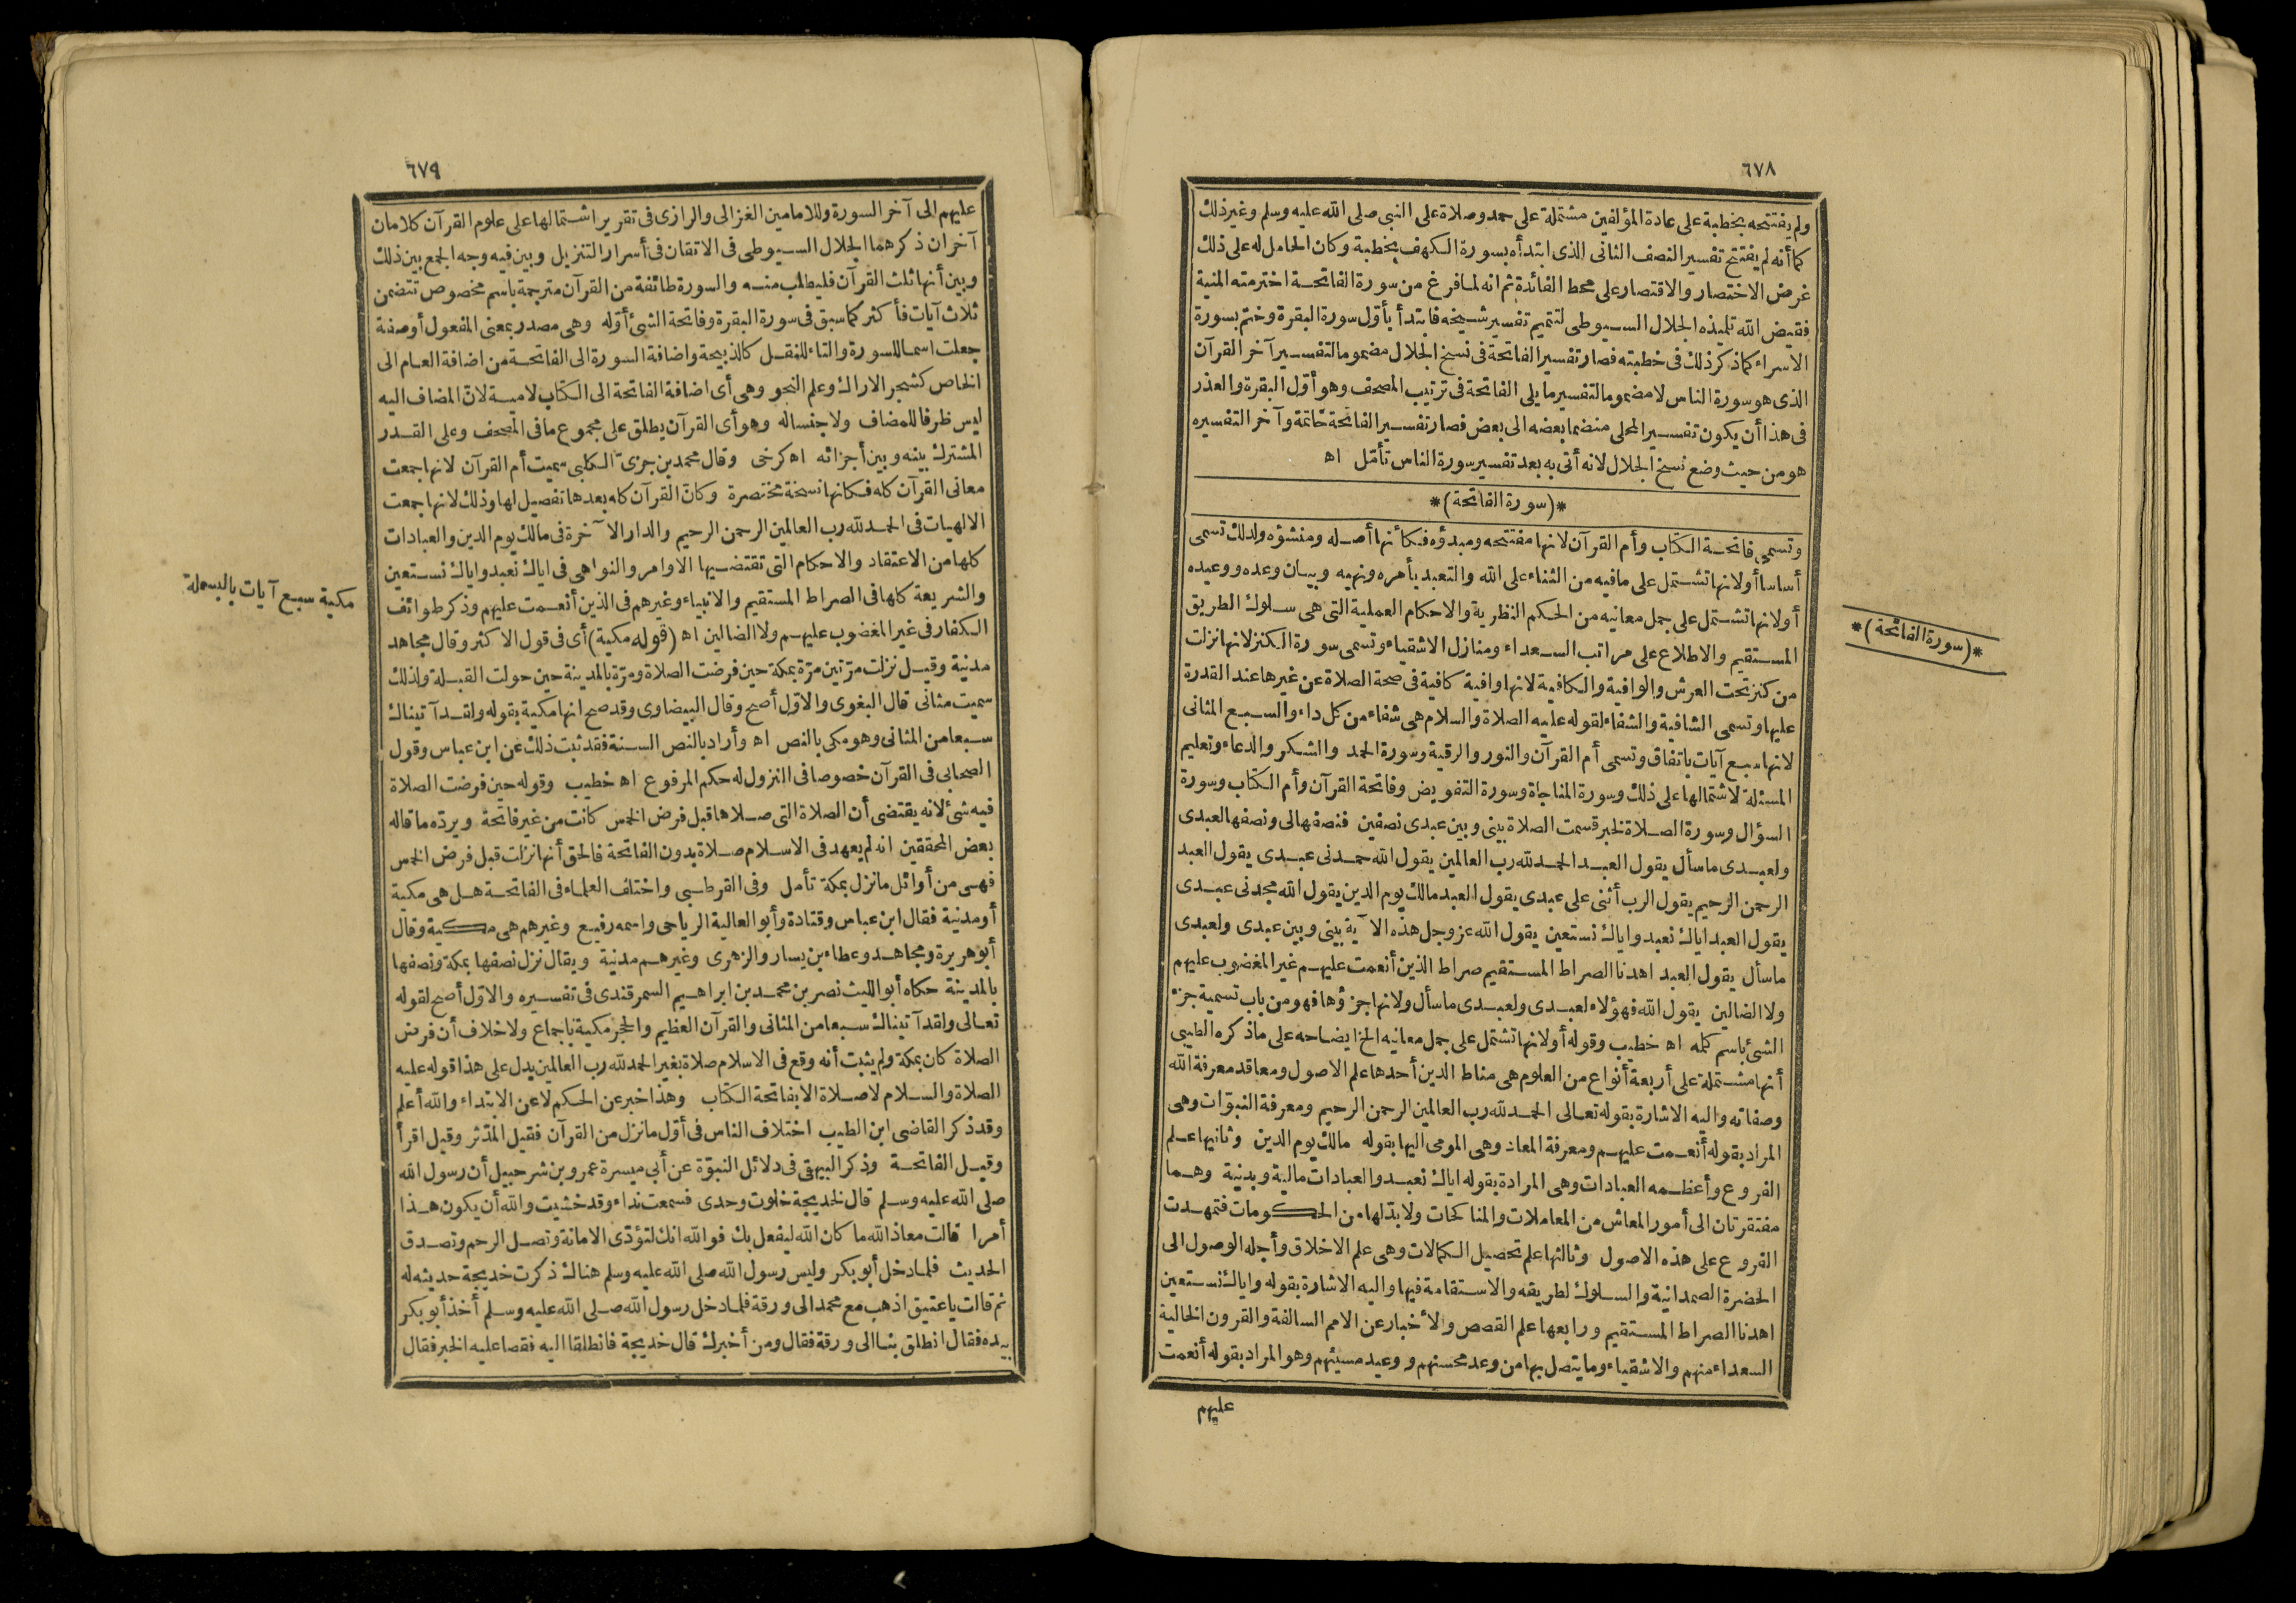 ٦٧٨
ولم يفتتحه بخطبة على عادة المؤلفين مشتملة على حمد وصلاة على النبى صلى الله عليه وسلم وغير ذلك
كما أنه لم يفتتح تفسير النصف الثانى الذى ابتدأه بسورة الكهف بخطبة وكان الحامل له على ذلك
غرض الاختصار والاقتصار على محط الفائدة ثم انه لما فرغ من سورة الفاتحة اخترمته المنية
فقيض الله تلميذه الجلال السيوطى لتتميم تفسير شيخه فابتدأ بأوّل سورة البقرة وختم بسورة
الاسراء كما ذكر ذلك فى خطبته فصار تفسير الفاتحة فى نسخ الجلال مضموما لتفسير آخر القرآن
الذى هو سورة الناس لا مضموما لتفسير ما يلى الفاتحة فى ترتيب المصحف وهو أوّل البقرة والعذر
فى هذا أن يكون تفسير المحلى منضما بعضه الى بعض فصار تفسير الفاتحة خاتمة وآخر التفسيره
هو من حيث وضع نسخ الجلال لانه أتى به بعد تفسير سورة الناس تأمّل اه
*(سورة الفاتحة)*
وتسمى فاتحة الكتاب وأم القرآن لانها مفتتحه ومبدؤه فكأنها أصله ومنشؤه ولذلك تسمى
أساسا أو لانها تشتمل على ما فيه من الثناء على الله والتعبد بأمره ونهيه وبيان وعده ووعيده
أو لانها تشتمل على جمل معانيه من الحكم النظرية والاحكام العملية التى هى سلوك الطريق
المستقيم والاطلاع على مراتب السعداء ومنازل الاشقياء وتسمى سورة الكنز لانها نزلت
من كنز تحت العرش والوافية والكافية لانها وافية كافية فى صحة الصلاة عن غيرها عند القدرة
عليها وتسمى الشافية والشفاء لقوله عليه الصلاة والسلام هى شفاء من كل داء والسبع المثانى
لانها سبع آيات باتفاق وتسمى أم القرآن والنور والرقية وسورة الحمد والشكر والدعاء وتعليم
المسئلة لاشتمالها على ذلك وسورة المناجاة وسورة التفويض وفاتحة القرآن وأم الكتاب وسورة
السؤال وسورة الصلاة لخبر قسمت الصلاة بينى وبين عبدى نصفين فنصفها لى ونصفها لعبدى
ولعبدى ما سأل يقول العبد الحمد لله رب العالمين يقول الله حمدنى عبدى يقول العبد
الرحمن الرحيم يقول الرب أثنى على عبدى يقول العبد مالك يوم الدين يقول الله مجدنى عبدى
يقول العبد اياك نعبد واياك نستعين يقول الله عز وجل هذه الآية بينى وبين عبدى ولعبدى
ما سأل يقول العبد اهدنا الصراط المستقيم صراط الذين أنعمت عليهم غير المغضوب عليهم
ولا الضالين يقول الله فهؤلاء لعبدى ولعبدى ما سأل ولانها جزؤها فهو من باب تسمية جزء
الشئ باسم كله اه خطيب وقوله أو لانها تشتمل على جمل معانيه الخ ايضاحه على ما ذكره الطيبى
أنها مشتملة على أربعة أنواع من العلوم هى مناط الدين أحدها علم الاصول ومعاقد معرفة الله
وصفاته واليه الاشارة بقوله تعالى الحمد لله رب العالمين الرحمن الرحيم ومعرفة النبوّات وهى
المراد بقوله أنعمت عليهم ومعرفة المعاد وهى المومى اليها بقوله مالك يوم الدين وثانيها علم
الفروع وأعظمه العبادات وهى المرادة بقوله اياك نعبد والعبادات مالية وبدنية وهما
مفتقرتان الى أمور المعاش من المعاملات والمناكحات ولا بدّ لها من الحكومات فتمهدت
الفروع على هذه الاصول وثالثها علم تحصيل الكمالات وهى علم الاخلاق وأجله الوصول الى
الحضرة الصمدانية والسلوك لطريقه والاستقامة فيها واليه الاشارة بقوله واياك نستعين
اهدنا الصراط المستقيم ورابعها علم القصص والأخبار عن الامم السالفة والقرون الخالية
السعداء منهم والاشقياء وما يتصل بها من وعد محسنهم ووعيد مسيئهم وهو المراد بقوله أنعمت
عليهم
*(سورة الفاتحة)*
٦٧٩
عليهم الى آخر السورة وللامامين الغزالى والرازى فى تقرير اشتمالها على علوم القرآن كلامان
آخران ذكرهما الجلال السيوطى فى الاتقان فى أسرار التنزيل وبين فيه وجه الجمع بين ذلك
وبين أنها ثلث القرآن فليطلب منه والسورة طائفة من القرآن مترجمة باسم مخصوص تتضمن
ثلاث آيات فأكثر كما سبق فى سورة البقرة وفاتحة الشئ أوّله وهى مصدر بمعنى المفعول أو صفة
جعلت اسما للسورة والتاء للنقل كالذبيحة واضافة السورة الى الفاتحة من اضافة العام الى
الخاص كشجر الاراك وعلم النحو وهى أى اضافة الفاتحة الى الكتاب لامية لان المضاف اليه
ليس ظرفا للمضاف ولا جنسا له وهو أى القرآن يطلق على مجموع ما فى المصحف وعلى القدر
المشترك بينه وبين أجزائه اه كرخى وقال محمد بن جزىّ الكلبى سميت أم القرآن لانها جمعت
معانى القرآن كله فكانها نسخة مختصرة وكان القرآن كله بعدها تفصيل لها وذلك لانها جمعت
الالهيات فى الحمد لله رب العالمين الرحمن الرحيم والدار الآخرة فى مالك يوم الدين والعبادات
كلها من الاعتقاد والاحكام التى تقتضيها الاوامر والنواهى فى اياك نعبد واياك نستعين
والشريعة كلها فى الصراط المستقيم والانبياء وغيرهم فى الذين أنعمت عليهم وذكر طوائف
الكفار فى غير المغضوب عليهم ولا الضالين اه (قوله مكية) أى فى قول الاكثر وقال مجاهد
مدنية وقيل نزلت مرّتين مرّة بمكة حين فرضت الصلاة ومرّة بالمدينة حين حولت القبلة ولذلك
سميت مثانى قال البغوى والاوّل أصح وقال البيضاوى وقد صح انها مكية بقوله ولقد آتيناك
سبعا من المثانى وهو مكى بالنص اه وأراد بالنص السنة فقد ثبت ذلك عن ابن عباس وقول
الصحابى فى القرآن خصوصا فى النزول له حكم المرفوع اه خطيب وقوله حين فرضت الصلاة
فيه شئ لانه يقتضى أن الصلاة التى صلاها قبل فرض الخمس كانت من غير فاتحة ويردّه ما قاله
بعض المحققين انه لم يعهد فى الاسلام صلاة بدون الفاتحة فالحق أنها نزلت قبل فرض الخمس
فهى من أوائل ما نزل بمكة تأمل وفى القرطبى واختلف العلماء فى الفاتحة هل هى مكية
أو مدنية فقال ابن عباس وقتادة وأبو العالية الرياحى واسمه رفيع وغيرهم هى مكية وقال
أبو هريرة ومجاهد وعطاء بن يسار والزهرى وغيرهم مدنية ويقال نزل نصفها بمكة ونصفها
بالمدينة حكاه أبو الليث نصر بن محمد بن ابراهيم السمرقندى فى تفسيره والاوّل أصح لقوله
تعالى ولقد آتيناك سبعا من المثانى والقرآن العظيم والحجر مكية باجماع ولا خلاف أن فرض
الصلاة كان بمكة ولم يثبت أنه وقع فى الاسلام صلاة بغير الحمد لله رب العالمين يدل على هذا قوله عليه
الصلاة والسلام لا صلاة الا بفاتحة الكتاب وهذا خبر عن الحكم لا عن الابتداء والله أعلم
وقد ذكر القاضى ابن الطيب اختلاف الناس فى أوّل ما نزل من القرآن فقيل المدّثر وقيل اقرأ
وقيل الفاتحة وذكر البيهقى فى دلائل النبوّة عن أبى ميسرة عمرو بن شرحبيل أن رسول الله
صلى الله عليه وسلم قال لخديجة خلوت وحدى فسمعت نداء وقد خشيت والله أن يكون هذا
أمرا قالت معاذ الله ما كان الله ليفعل بك فوالله انك لتؤدّى الامانة وتصل الرحم وتصدق
الحديث فلما دخل أبو بكر وليس رسول الله صلى الله عليه وسلم هناك ذكرت خديجة حديثه له
ثم قالت يا عتيق اذهب مع محمد الى ورقة فلما دخل رسول الله صلى الله عليه وسلم أخذ أبو بكر
بيده فقال انطلق بنا الى ورقة فقال ومن أخبرك قال خديجة فانطلقا اليه فقصا عليه الخبر فقال
مكية سبع آيات بالبسملة